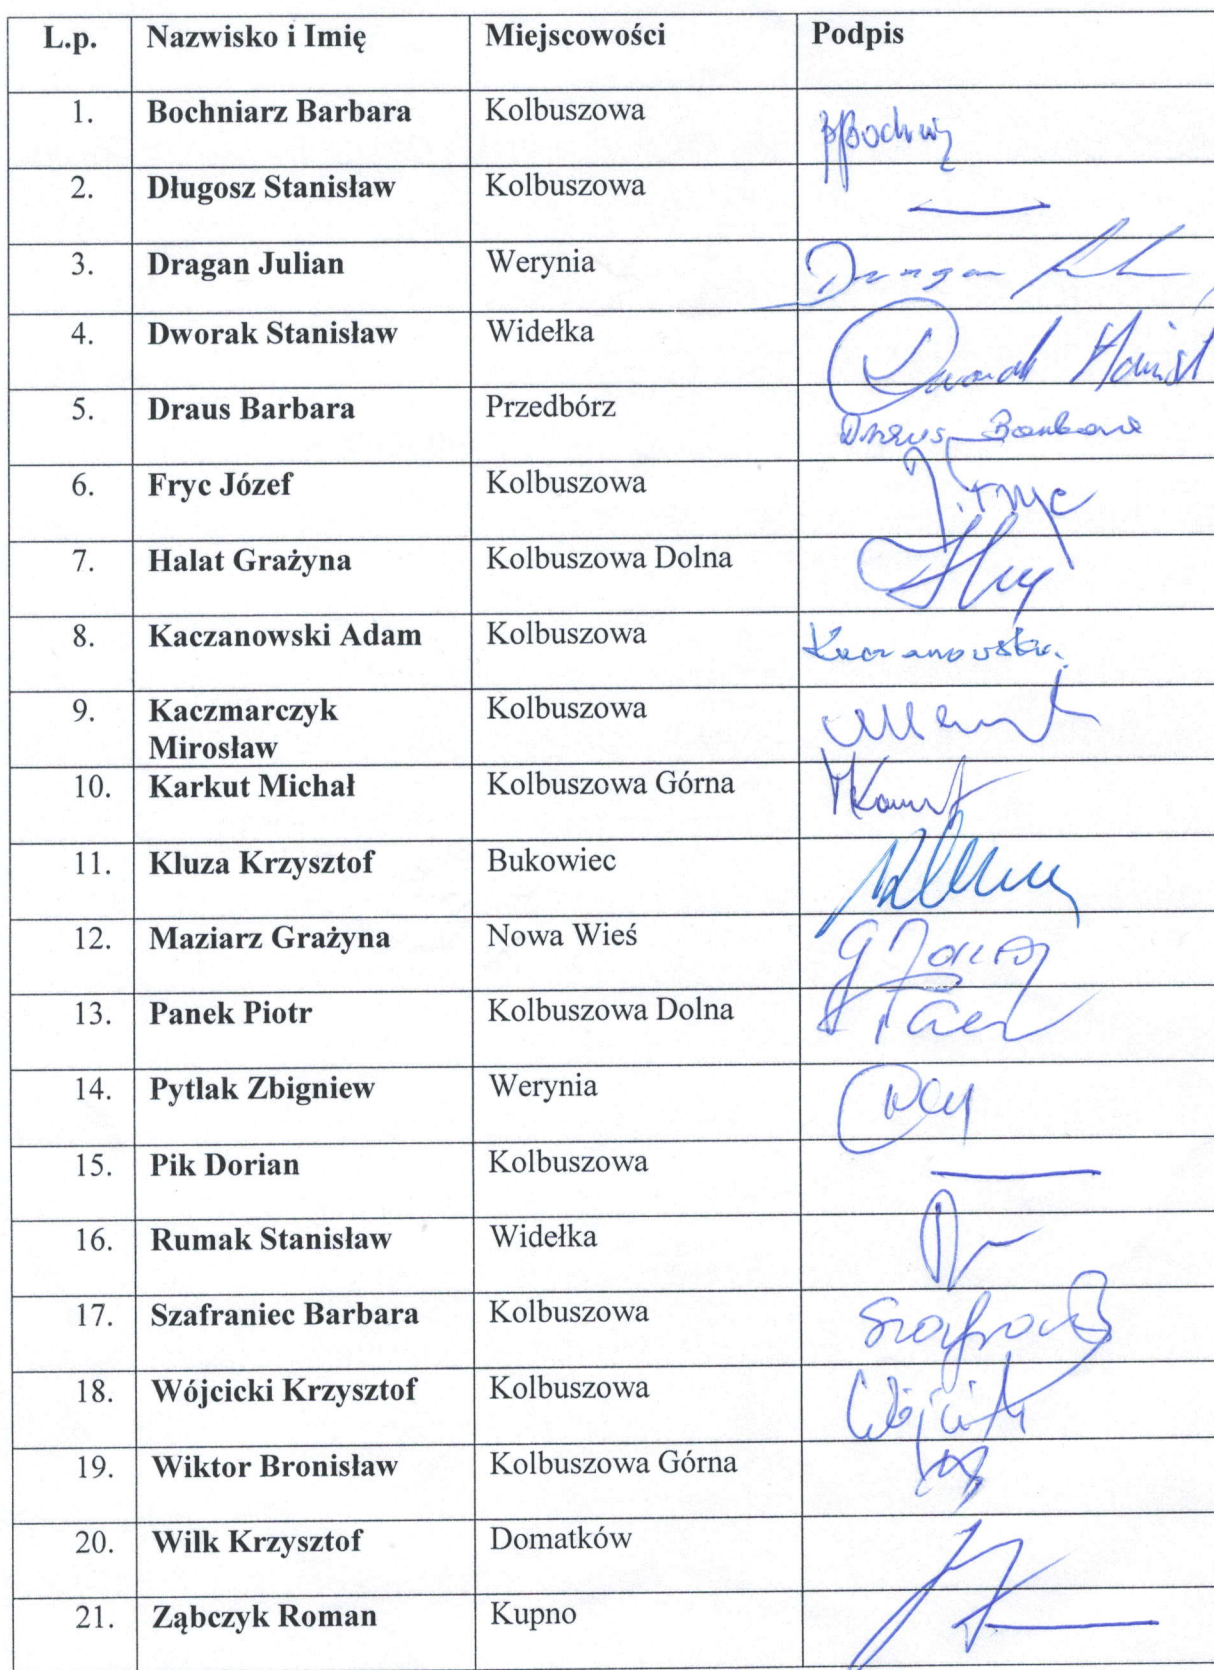 L.p. Nazwisko i Imię Miejscowości Podpis
1. Bochniarz Barbara Kolbuszowa
2. Długosz Stanisław Kolbuszowa
3. Dragan Julian Werynia Dragan
4. Dworak Stanisław Widełka Dworak
5. Draus Barbara Przedbórz Draus Barbara
6. Fryc Józef Kolbuszowa J. Fryc
7. Halat Grażyna Kolbuszowa Dolna
8. Kaczanowski Adam Kolbuszowa Kaczanowski
9. Kaczmarczyk Kolbuszowa
Mirosław
10. Karkut Michał Kolbuszowa Górna
11. Kluza Krzysztof Bukowiec
12. Maziarz Grażyna Nowa Wieś
13. Panek Piotr Kolbuszowa Dolna
14. Pytlak Zbigniew Werynia
15. Pik Dorian Kolbuszowa
16. Rumak Stanisław Widełka
17. Szafraniec Barbara Kolbuszowa
18. Wójcicki Krzysztof Kolbuszowa
19. Wiktor Bronisław Kolbuszowa Górna
20. Wilk Krzysztof Domatków
21. Ząbczyk Roman Kupno